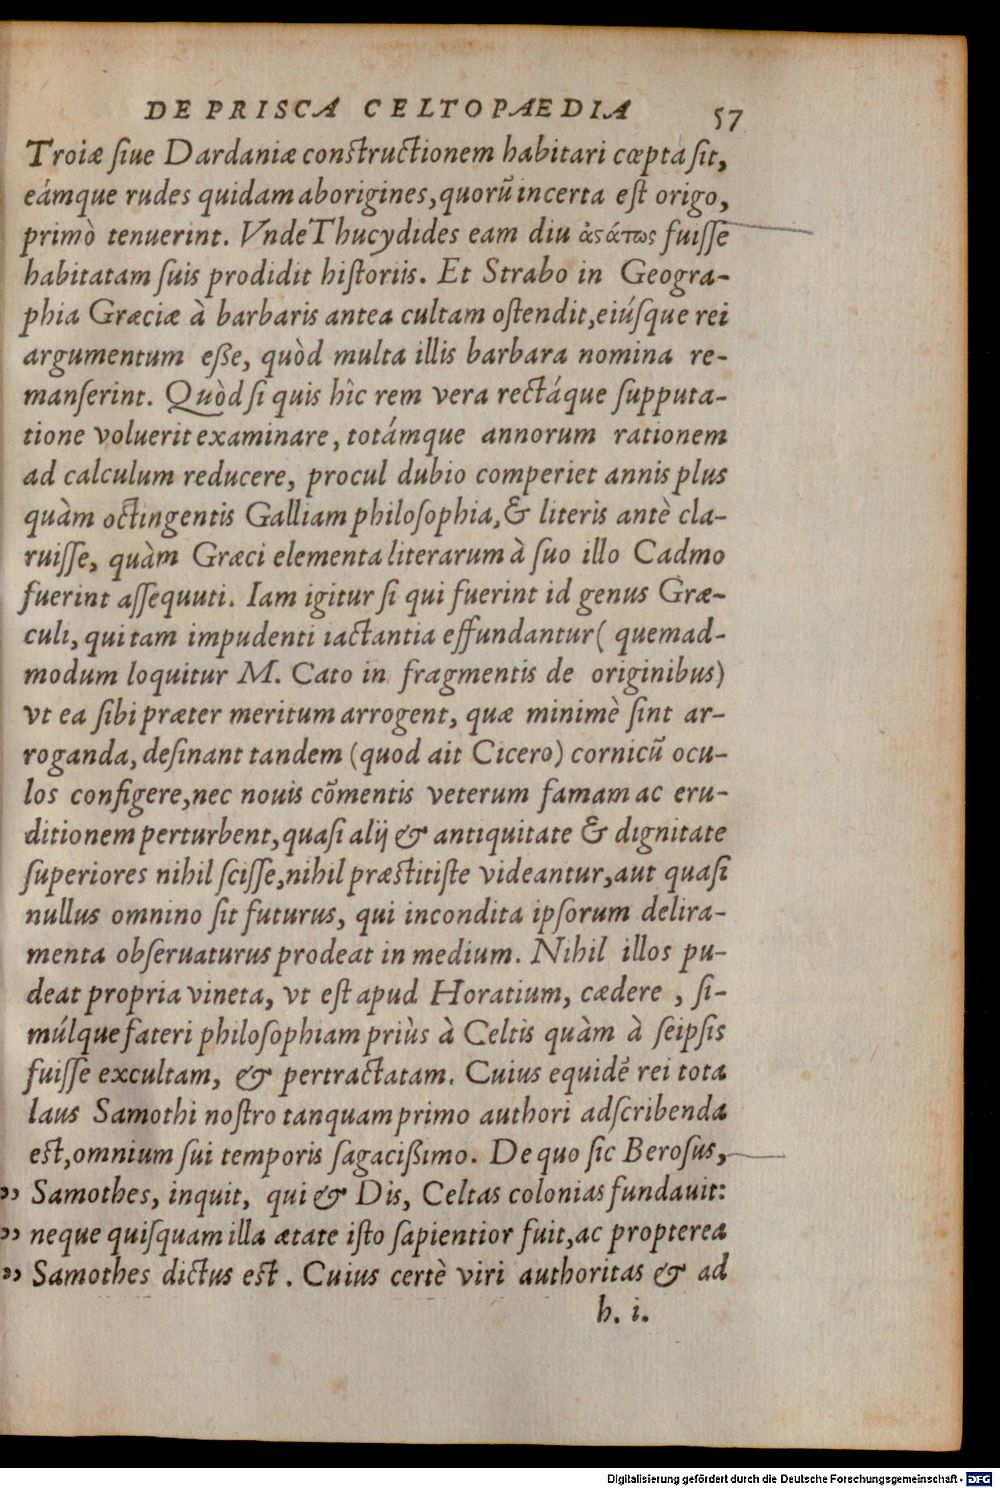 DE PRISCA CELTOPAEDIA 57
Troiæ ſiue Dardaniæ constructionem habitari cœpta ſit,
eámque rudes quidam aborigines, quorũ incerta eſt origo,
primò tenuerint. Vnde Thucydides eam diu ἀϛάτως fuiſſe
habitatam ſuis prodidit hiſtoriis. Et Strabo in Geogra-
phia Græciæ à barbaris antea cultam oſtendit, eiúſque rei
argumentum eſſe, quòd multa illis barbara nomina re-
manſerint. Quòd ſi quis hîc rem vera rectáque ſupputa-
tione voluerit examinare, totámque annorum rationem
ad calculum reducere, procul dubio comperiet annis plus
quàm octingentis Galliam philoſophia, & literis antè cla-
ruiſſe, quàm Græci elementa literarum à ſuo illo Cadmo
fuerint aſſequuti. Iam igitur ſi qui fuerint id genus Græ-
culi, qui tam impudenti iactantia effundantur ( quemad-
modum loquitur M. Cato in fragmentis de originibus)
vt ea ſibi præter meritum arrogent, quæ minimè ſint ar-
roganda, deſinant tandem (quod ait Cicero) cornicũ ocu-
los configere, nec nouis cõmentis veterum famam ac eru-
ditionem perturbent, quaſi alij & antiquitate & dignitate
ſuperiores nihil ſciſſe, nihil præstitiſte videantur, aut quaſi
nullus omnino ſit futurus, qui incondita ipſorum delira-
menta obſeruaturus prodeat in medium. Nihil illos pu-
deat propria vineta, vt eſt apud Horatium, cædere , ſi-
múlque fateri philoſophiam priùs à Celtis quàm à ſeipſis
fuiſſe excultam, & pertractatam. Cuius equidẽ rei tota
laus Samothi noſtro tanquam primo authori adſcribenda
est, omnium ſui temporis ſagaciſſimo. De quo ſic Beroſus,
,, Samothes, inquit, qui & Dis, Celtas colonias fundauit:
,, neque quiſquam illa ætate iſto ſapientior fuit, ac propterea
,, Samothes dictus est. Cuius certè viri authoritas & ad
h. i.
Digitalisierung gefördert durch die Deutsche Forschungsgemeinschaft - DFG